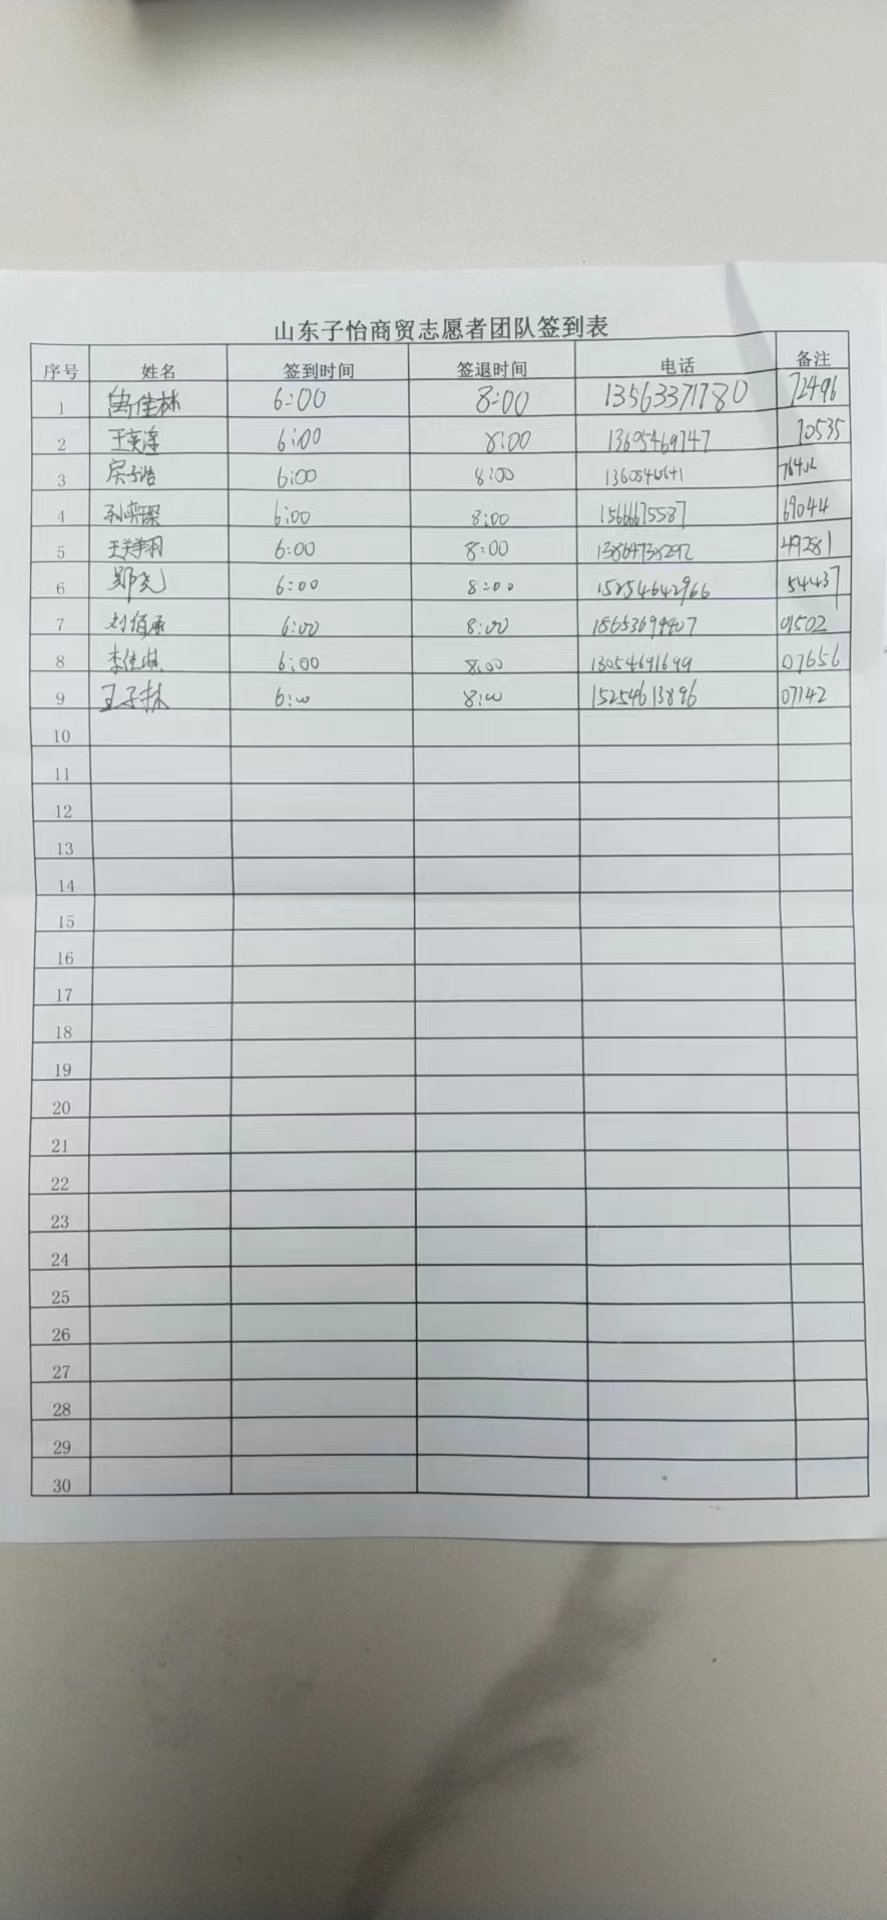 山东子怡商贸志愿者团队签到表
序号 姓名 签到时间 签退时间 电话 备注
1 禹佳林 6:00 8:00 13563371780 72496
2 王英 6:00 8:00 13605469747 70535
3 房子浩 6:00 8:00
4 孙奕琛 6:00 8:00 15666675587 69044
5 6:00 8:00 13864738292 49281
6 郑尧 6:00 8:00 15254642966 54437
7 刘佰承 6:00 8:00 18653694407 01502
8 李佳琪 6:00 8:00 13054691699 07656
9 王子林 6:00 8:00 15254613896 07142
10
11
12
13
14
15
16
17
18
19
20
21
22
23
24
25
26
27
28
29
30